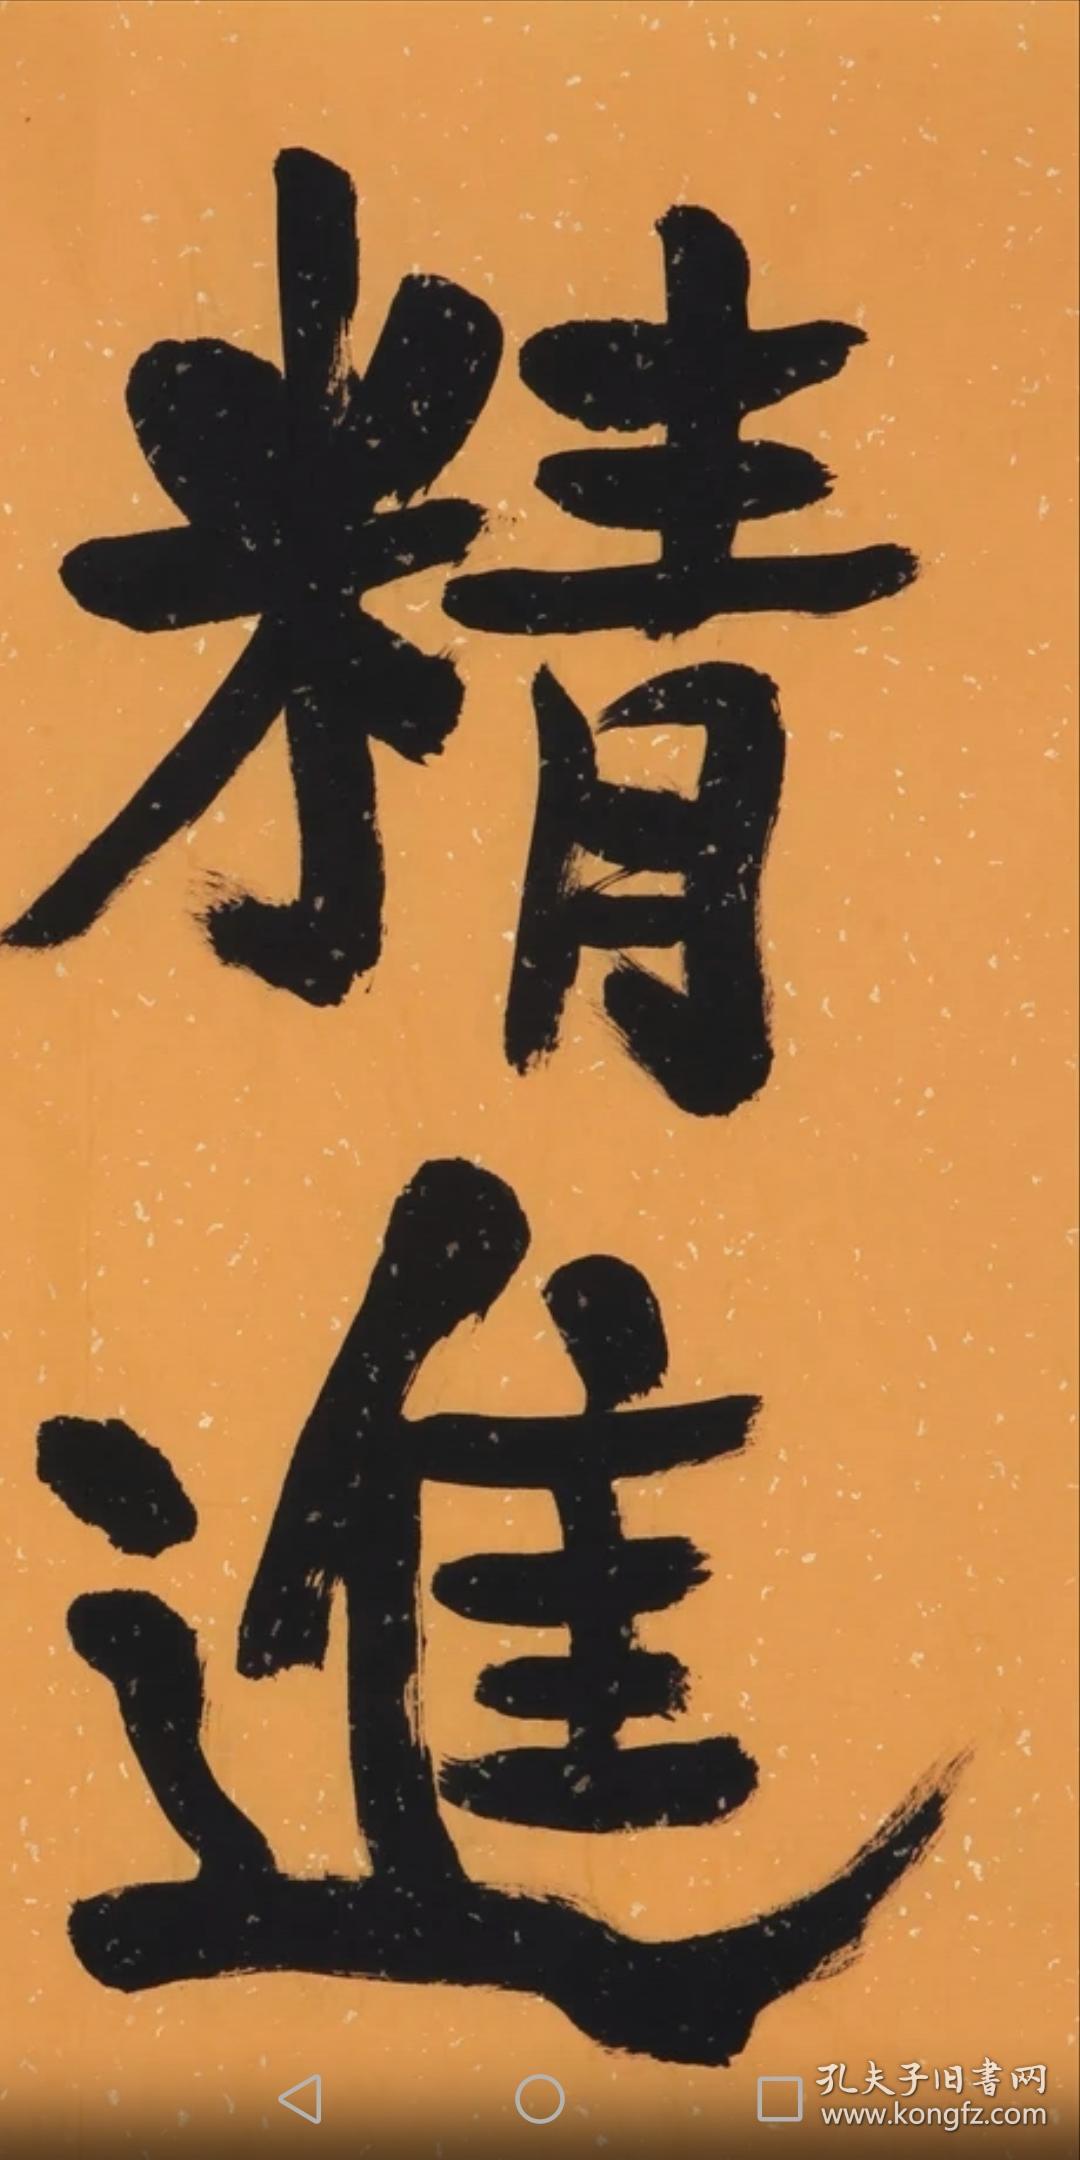 精
進
孔夫子旧書网
www.kongfz.com